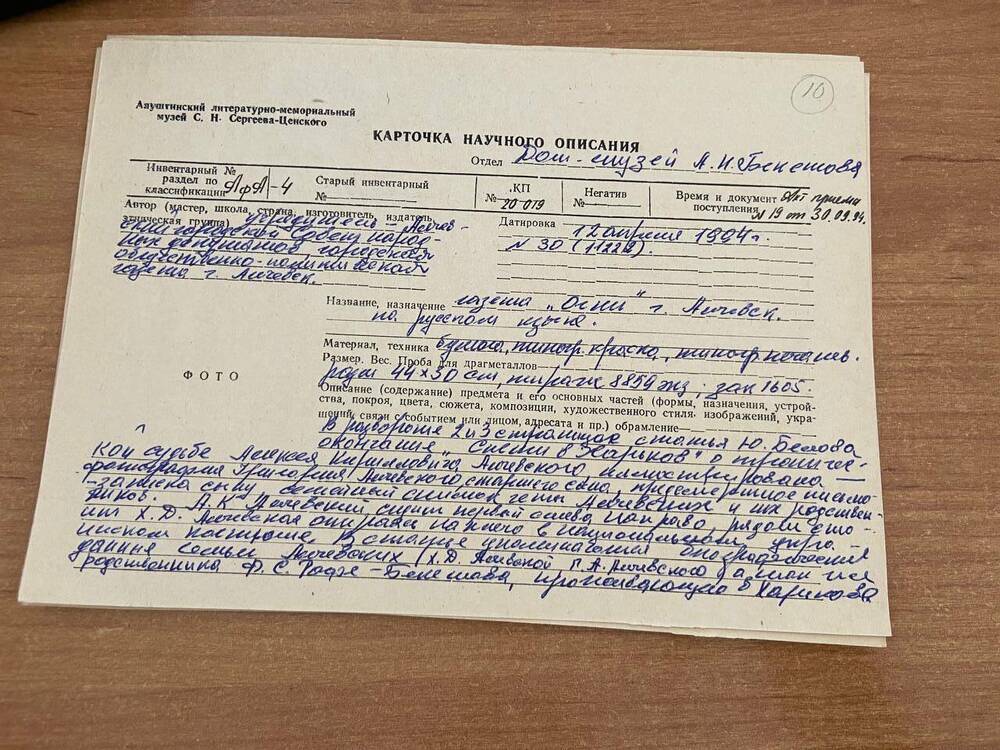 10
Алуштинский литературно-мемориальный
музей С. Н. Сергеева-Ценского
КАРТОЧКА НАУЧНОГО ОПИСАНИЯ
Отдел Дом-музей А.Н. Бекетова
Инвентарный №
раздел по
классификации АфА-4
Старый инвентарный
№
КП
№ 20 019
Негатив
№
Время и документ Акт приема
поступления №19 от 30.09.94.
Автор (мастер, школа, страна, изготовитель, издатель,
этническая группа) учредитель Алчев-
ский городской Совет народ-
ных депутатов городская
общественно-политическая
газета г. Алчевск.
Датировка 12 апреля 1994 г.
N 30 (11228).
Название, назначение газета „Огни" г. Алчевск.
на русском языке.
Материал, техника бумага, типогр. краска, типогр. печать.
Размер. Вес. Проба для драгметаллов
44×30 см, тираж 8859 экз; зак 1605.
Описание (содержание) предмета и его основных частей (формы, назначения, устрой-
ства, покроя, цвета, сюжета, композиции, художественного стиля изображений, укра-
шений, связи с событием или лицом, адресата и пр.) обрамление
ФОТО
В развороте 2 и 3 страницах статья Ю. Белова
окончание „Спеши в Харьков" о трагичес-
кой судьбе Алексея Кирилловича Алчевского, иллюстрирована —
фотография Григория Алчевского, старшего сына, предсмертное письмо
-записка сыну, семейный снимок четы Алчевских и их родствен-
ников. А.К Алчевский сидит первый слева направо, рядом с его
Х.Д. Алчевская в национальном укра-
инском костюме. В статье упоминаются биографические
данные семьи Алчевских (Х.Д. Алчевской Г. А. Алчевского) а так же
родственника Ф. С. Бекетова, проживающего в Харькове